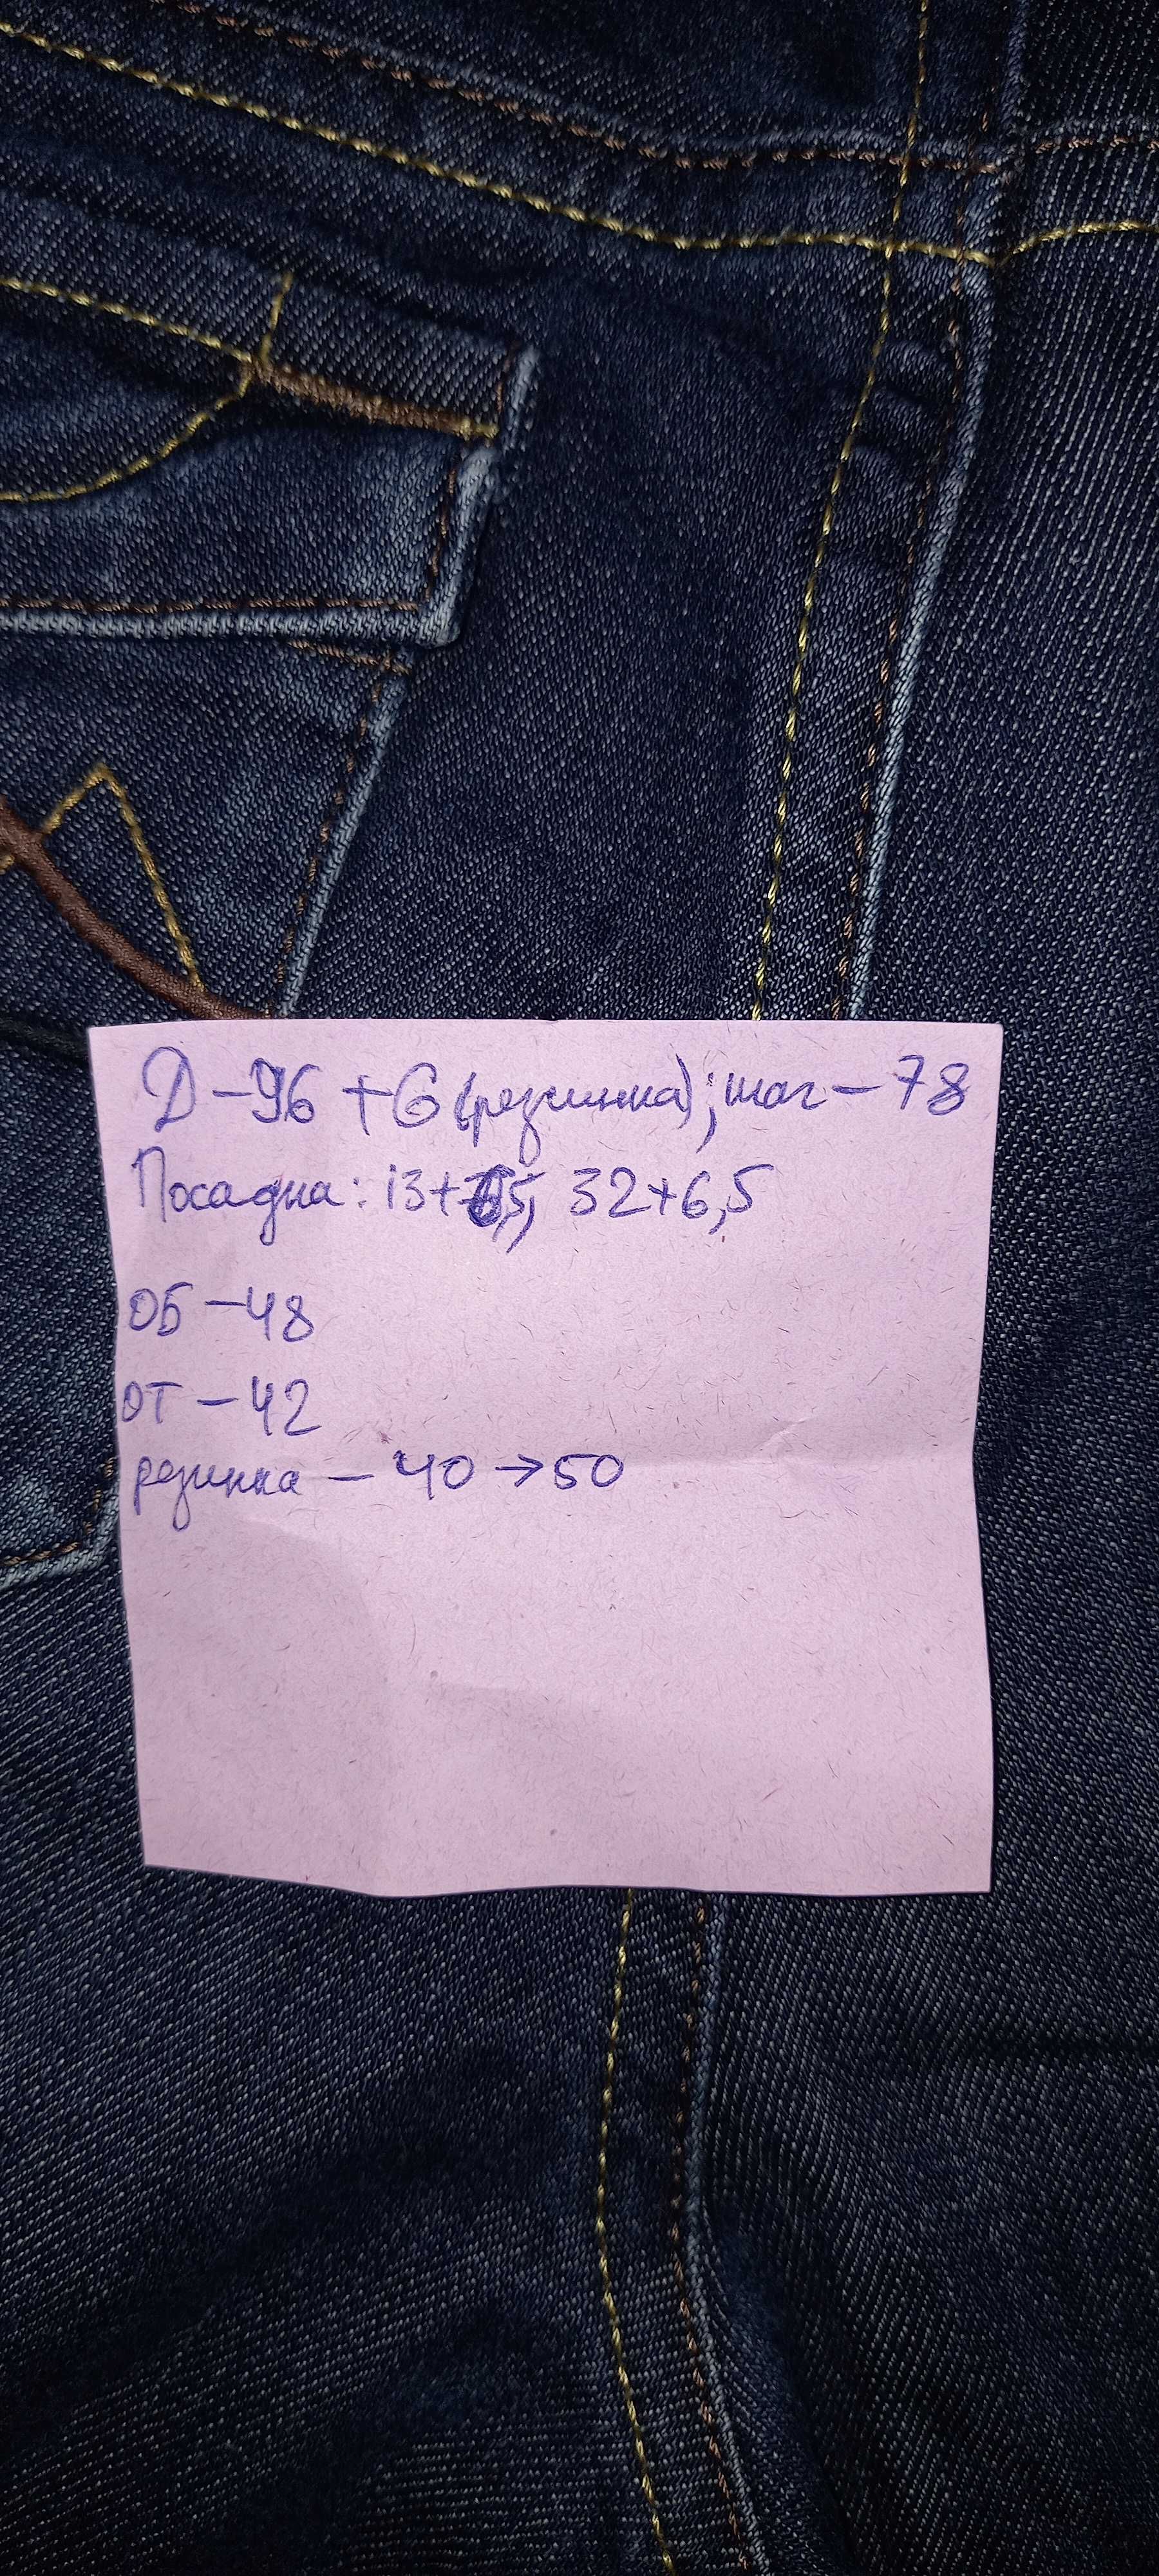 Д – 96 + 6 (резинка); шаг – 78
Посадка: 13+6,5; 32+6,5
ОБ – 48
ОТ – 42
резинка – 40 → 50